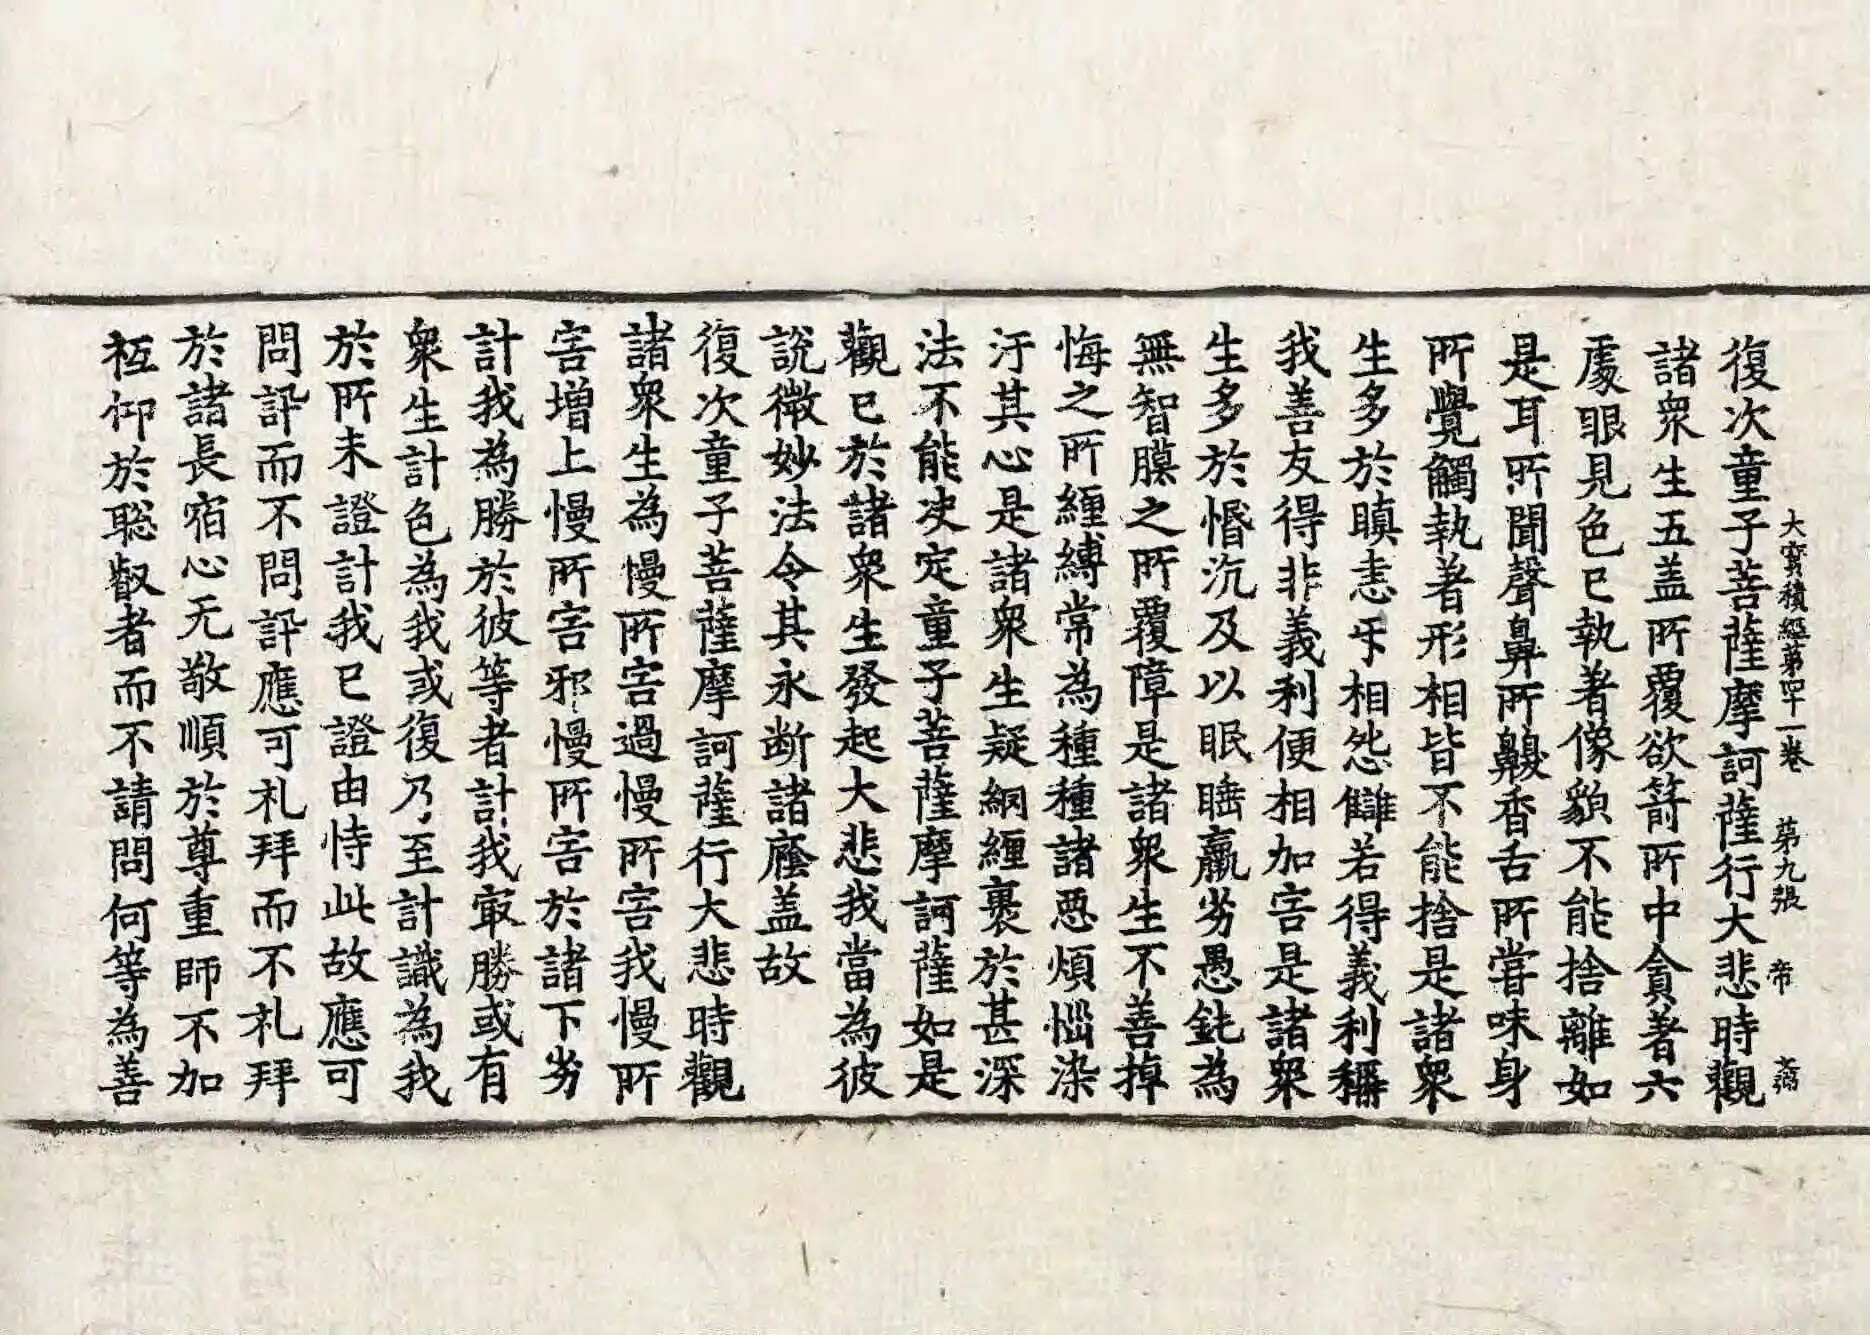 大寳積經第四十一卷　第九張　帝
復次童子菩薩摩訶薩行大悲時觀
諸衆生五盖所覆欲箭所中貪著六
處眼見色已執著像貌不能捨離如
是耳所聞聲鼻所齅香舌所甞味身
所覺觸執著形相皆不能捨是諸衆
生多於瞋恚互相怨讎若得義利稱
我善友得非義利便相加害是諸衆
生多於惛沉及以眠睡羸劣愚鈍為
無智膜之所覆障是諸衆生不善掉
悔之所纏縛常為種種諸惡煩惱染
汙其心是諸衆生疑網纏裹於甚深
法不能決定童子菩薩摩訶薩如是
觀已於諸衆生發起大悲我當為彼
說微妙法令其永断諸廕盖故
復次童子菩薩摩訶薩行大悲時觀
諸衆生為慢所害過慢所害我慢所
害增上慢所害邪慢所害於諸下劣
計我為勝於彼等者計我㝡勝或有
衆生計色為我或復乃至計識為我
於所未證計我已證由恃此故應可
問訊而不問訊應可礼拜而不礼拜
於諸長宿心无敬順於尊重師不加
祗仰於聡叡者而不請問何等為善